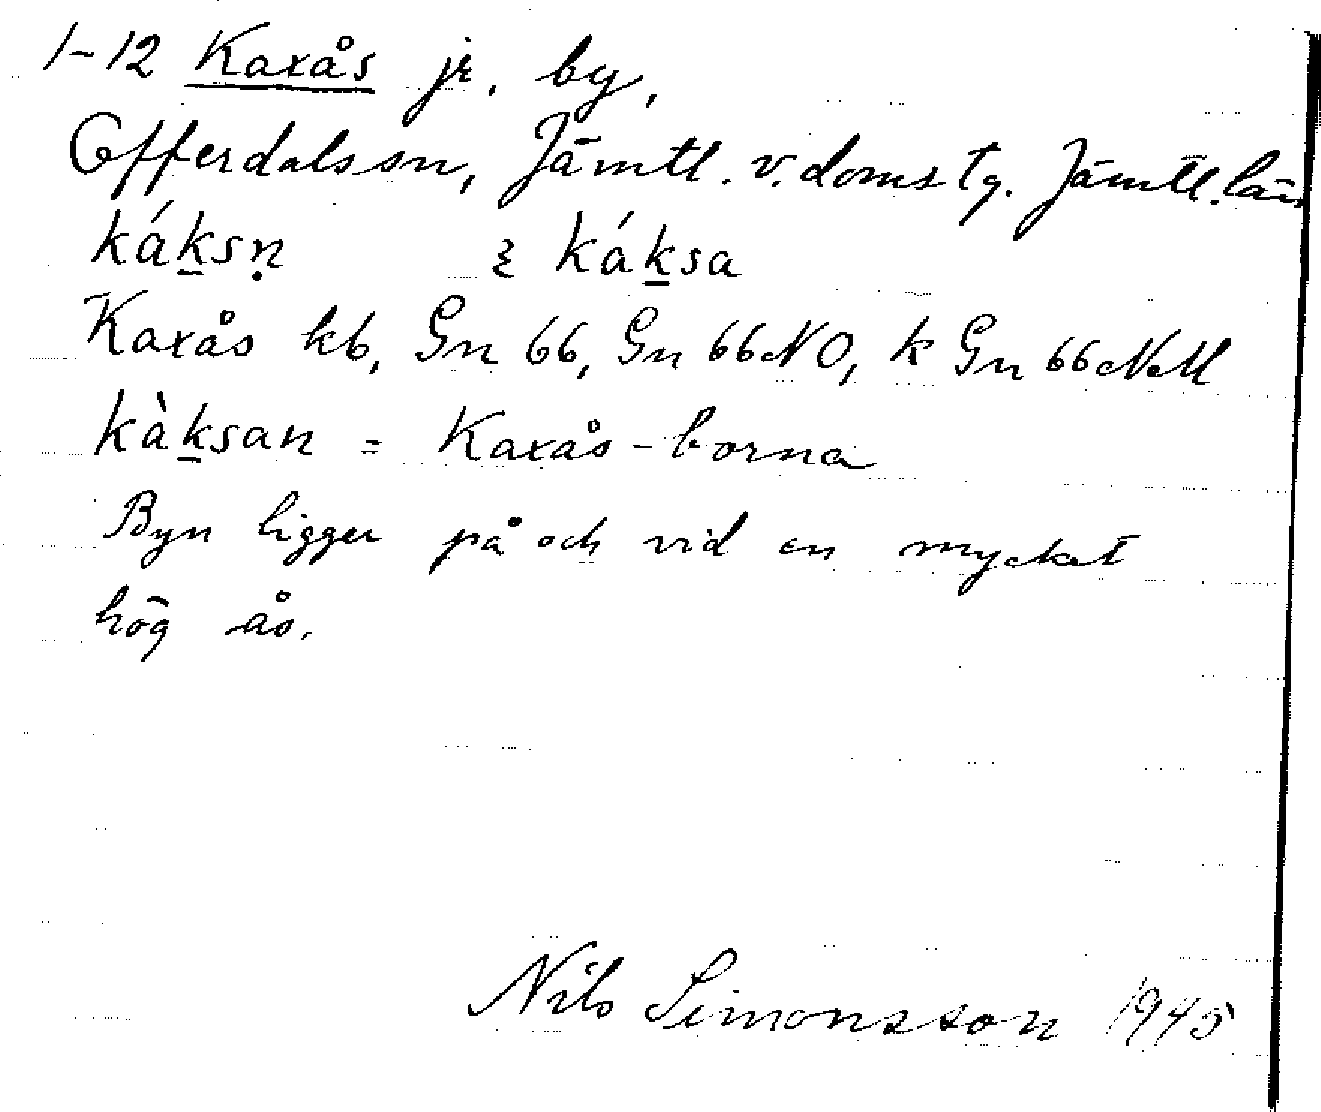 1-12 Kaxås jr, by,
Offerdalssn, Jämtl. v. doms tg. Jämtl. län
káḵsṇ ξ káḵsa
Kaxås kb, Gn 66, Gn 66 NO, k Gn 66
kàḵsan = Kaxås-borna
Byn ligger på och vid en mycket
hög ås.
Nils Simonsson 1945